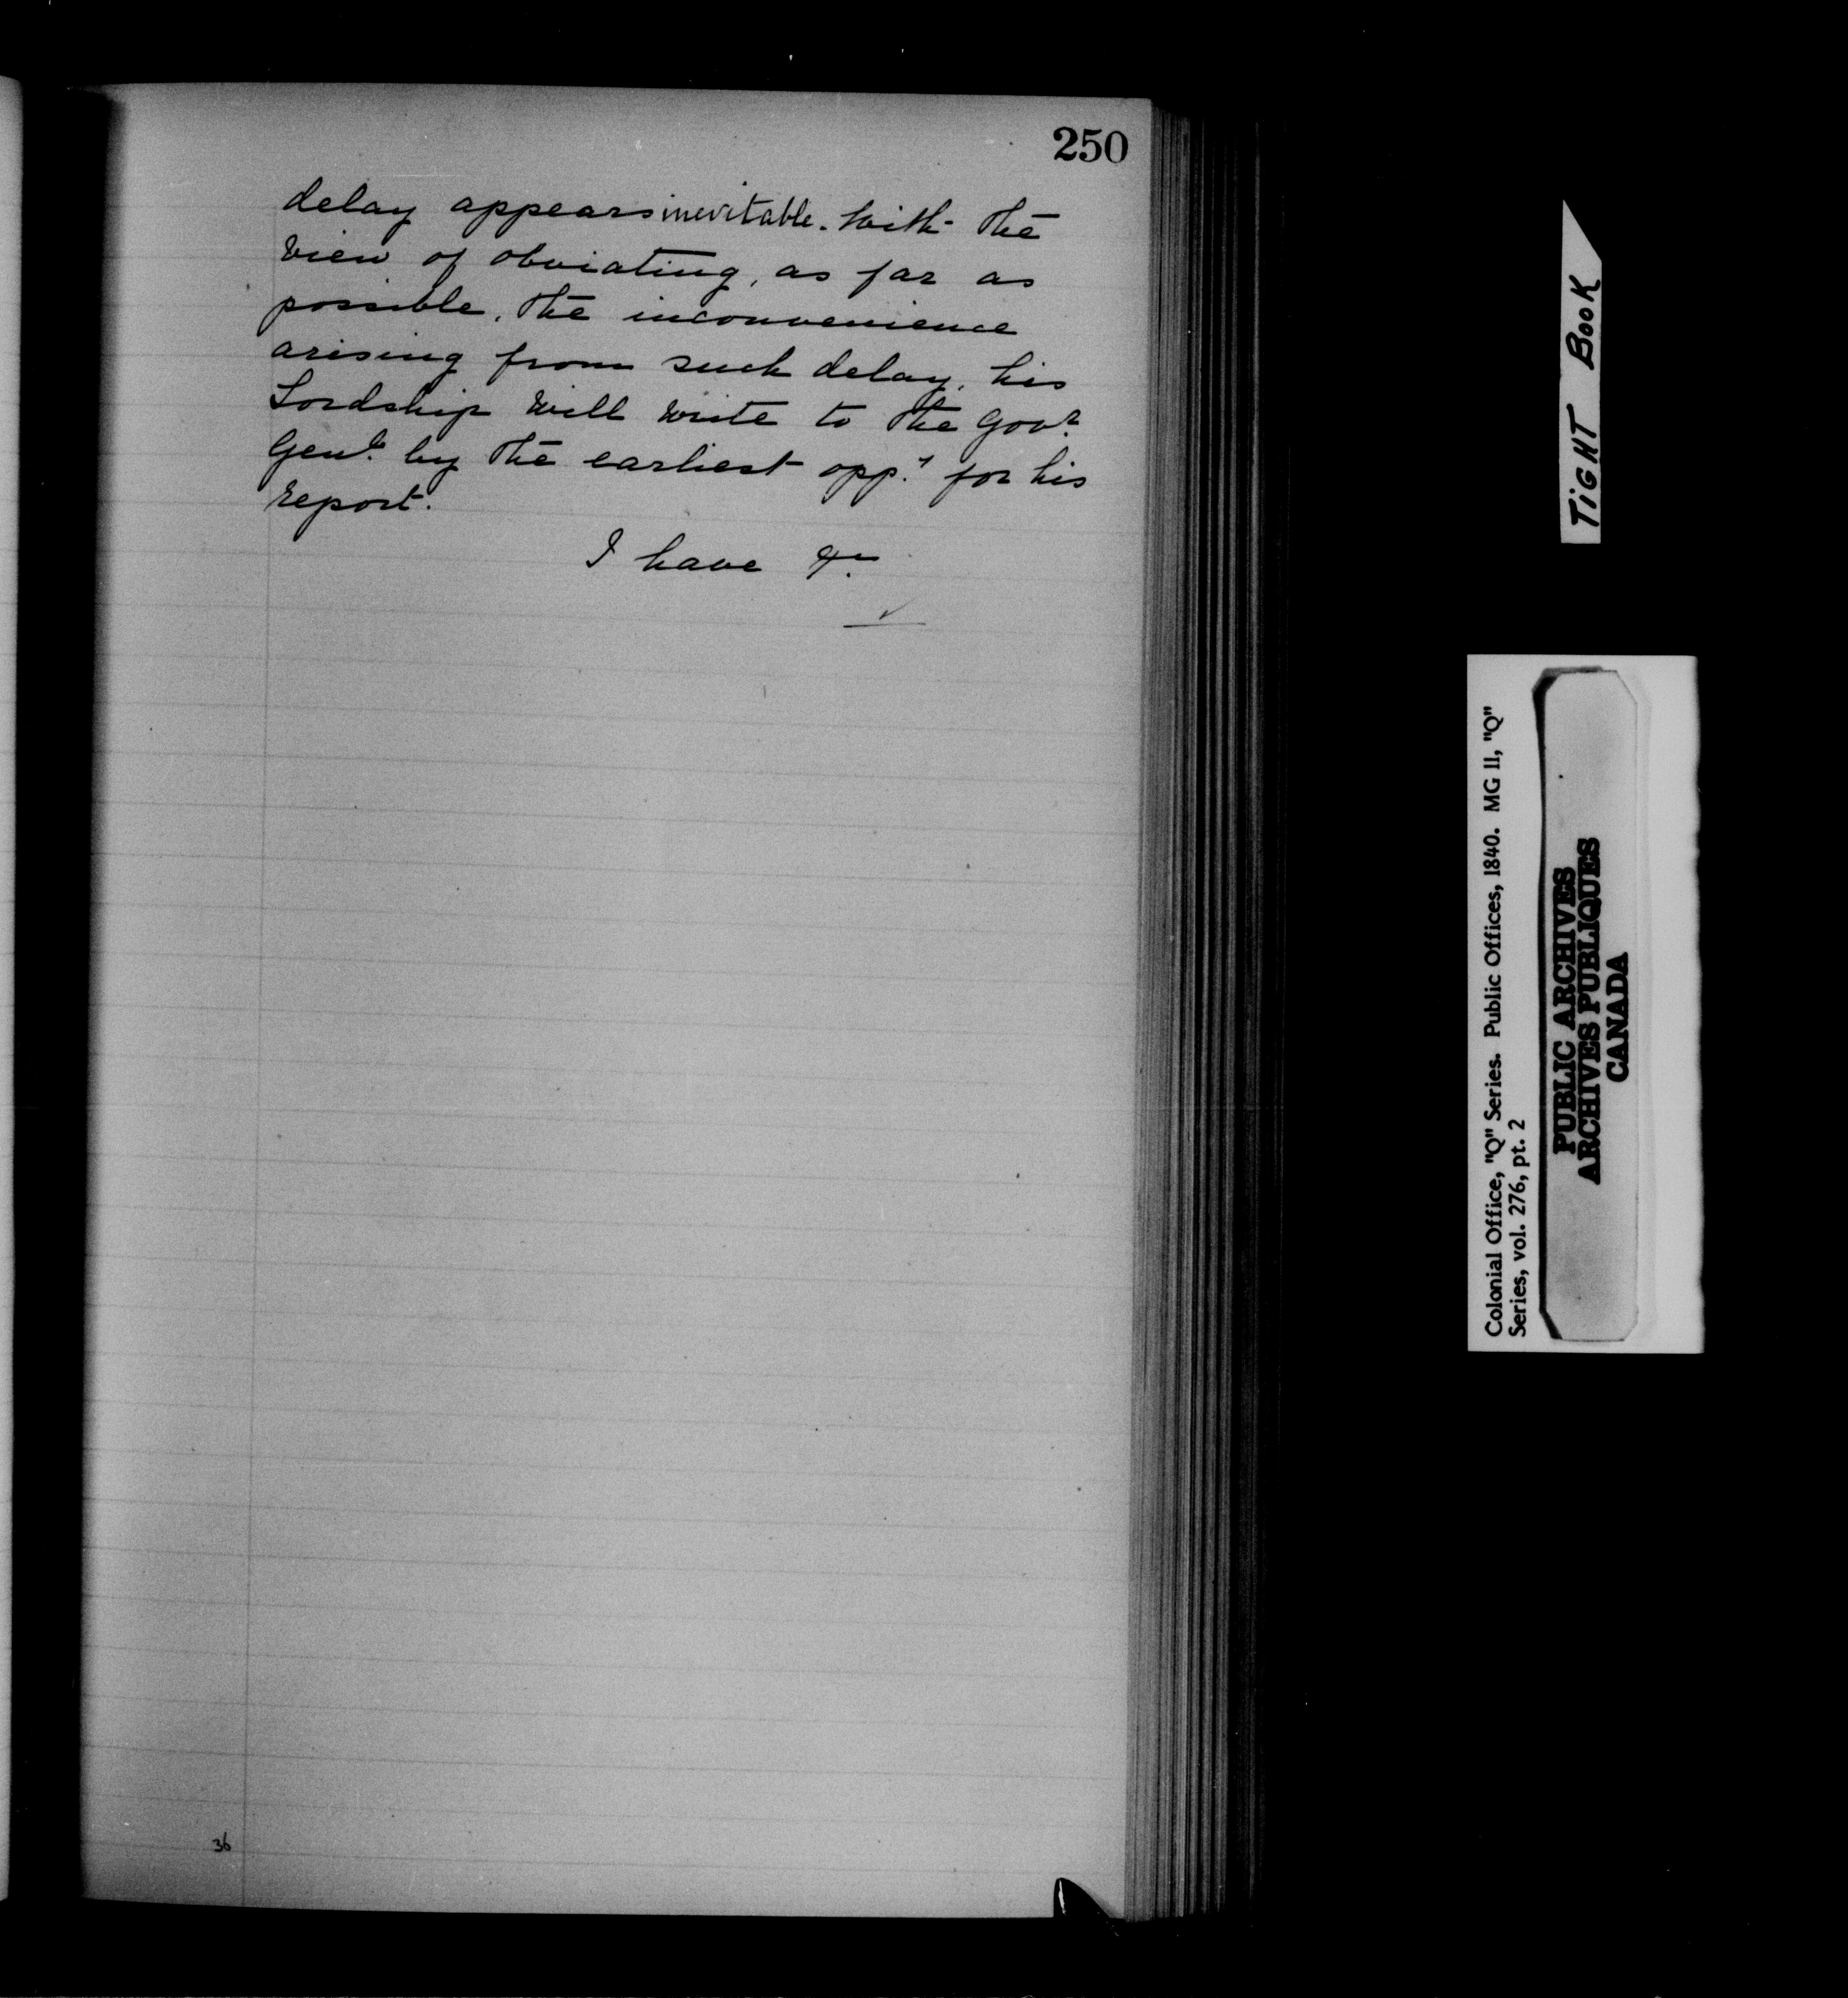 250
delay appears inevitable. With the
view of obviating, as far as
possible, the inconvenience
arising from such delay, his
Lordship will write to the Govr.
Genl. by the earliest oppy. for his
report.
I have &c.
36
TIGHT BOOK
Colonial Office, "Q" Series. Public Offices, 1840. MG 11, "Q"
Series, vol. 276, pt. 2
PUBLIC ARCHIVES
ARCHIVES PUBLIQUES
CANADA